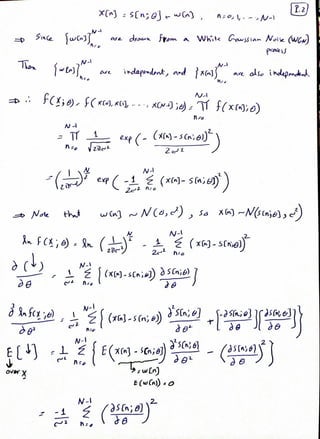 x[n] = s[n;θ] + w[n] , n=0,1,...,N-1
1.2
⇒ Since {w[n]}_{n=0}^{N-1} are drawn from a White Gaussian Noise (WGN)
process
Then {w[n]}_{n=0}^{N-1} are independent, and {x[n]}_{n=0}^{N-1} are also independent.
⇒ ∴ f(x;θ) = f(x[0], x[1], ..., x[N-1];θ) = ∏_{n=0}^{N-1} f(x[n];θ)
= ∏_{n=0}^{N-1} 1/√(2πσ²) exp(-(x[n]-s[n;θ])²/2σ²)
= (1/2πσ²)^{N/2} exp(-1/2σ² Σ_{n=0}^{N-1} (x[n]-s[n;θ])²)
⇒ Note that w[n] ~ N(0,σ²), so x[n] ~ N(s[n;θ],σ²)
ln f(x;θ) = ln (1/2πσ²)^{N/2} - 1/2σ² Σ_{n=0}^{N-1} (x[n]-s[n;θ])²
∂(↓)/∂θ = 1/σ² Σ_{n=0}^{N-1} {(x[n]-s[n;θ]) ∂s[n;θ]/∂θ}
∂² ln f(x;θ)/∂θ² = 1/σ² Σ_{n=0}^{N-1} {(x[n]-s[n;θ]) ∂²s[n;θ]/∂θ² + [-∂s[n;θ]/∂θ][∂s[n;θ]/∂θ]}
E[↓] = 1/σ² Σ_{n=0}^{N-1} {E(x[n]-s[n;θ]) ∂²s[n;θ]/∂θ² - (∂s[n;θ]/∂θ)²}
over x
= w[n]
E(w[n]) = 0
= -1/σ² Σ_{n=0}^{N-1} (∂s[n;θ]/∂θ)²